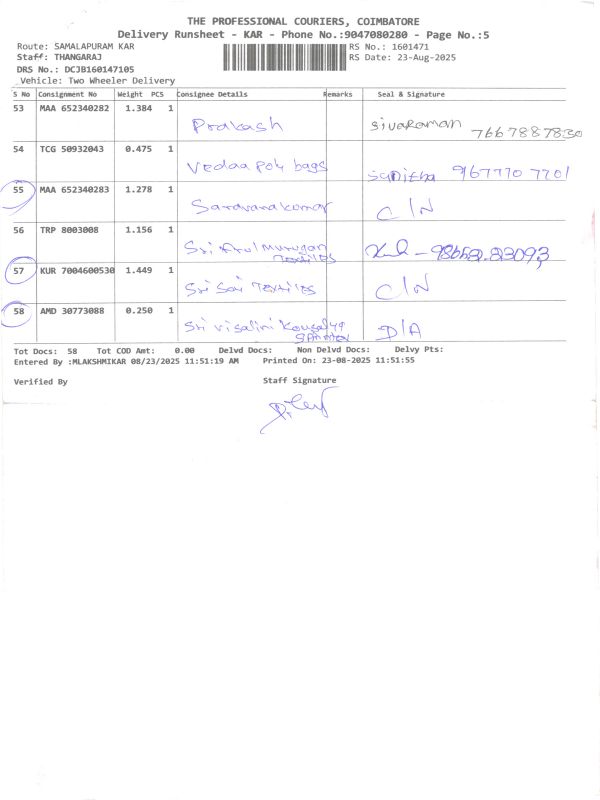 THE PROFESSIONAL COURIERS, COIMBATORE
Delivery Runsheet - KAR - Phone No.:9047080280 - Page No.:5
Route: SAMALAPURAM KAR RS No.: 1601471
Staff: THANGARAJ RS Date: 23-Aug-2025
DRS No.: DCJB160147105
Vehicle: Two Wheeler Delivery
S No Consignment No Weight PCS Consignee Details Remarks Seal & Signature
53 MAA 652340282 1.384 1
Prakash Sivaraman 7667887830
54 TCG 50932043 0.475 1
Vedaa Poly bags 9677707701
55 MAA 652340283 1.278 1
Saravanakumar C/N
56 TRP 8003008 1.156 1
Sri Arul Murugan
Textiles
57 KUR 7004600530 1.449 1
Sri Sai Textiles C/N
58 AMD 30773088 0.250 1
Sri Visalini Kousalya D/A
Tot Docs: 58 Tot COD Amt: 0.00 Delvd Docs: Non Delvd Docs: Delvy Pts:
Entered By :MLAKSHMIKAR 08/23/2025 11:51:19 AM Printed On: 23-08-2025 11:51:55
Verified By Staff Signature